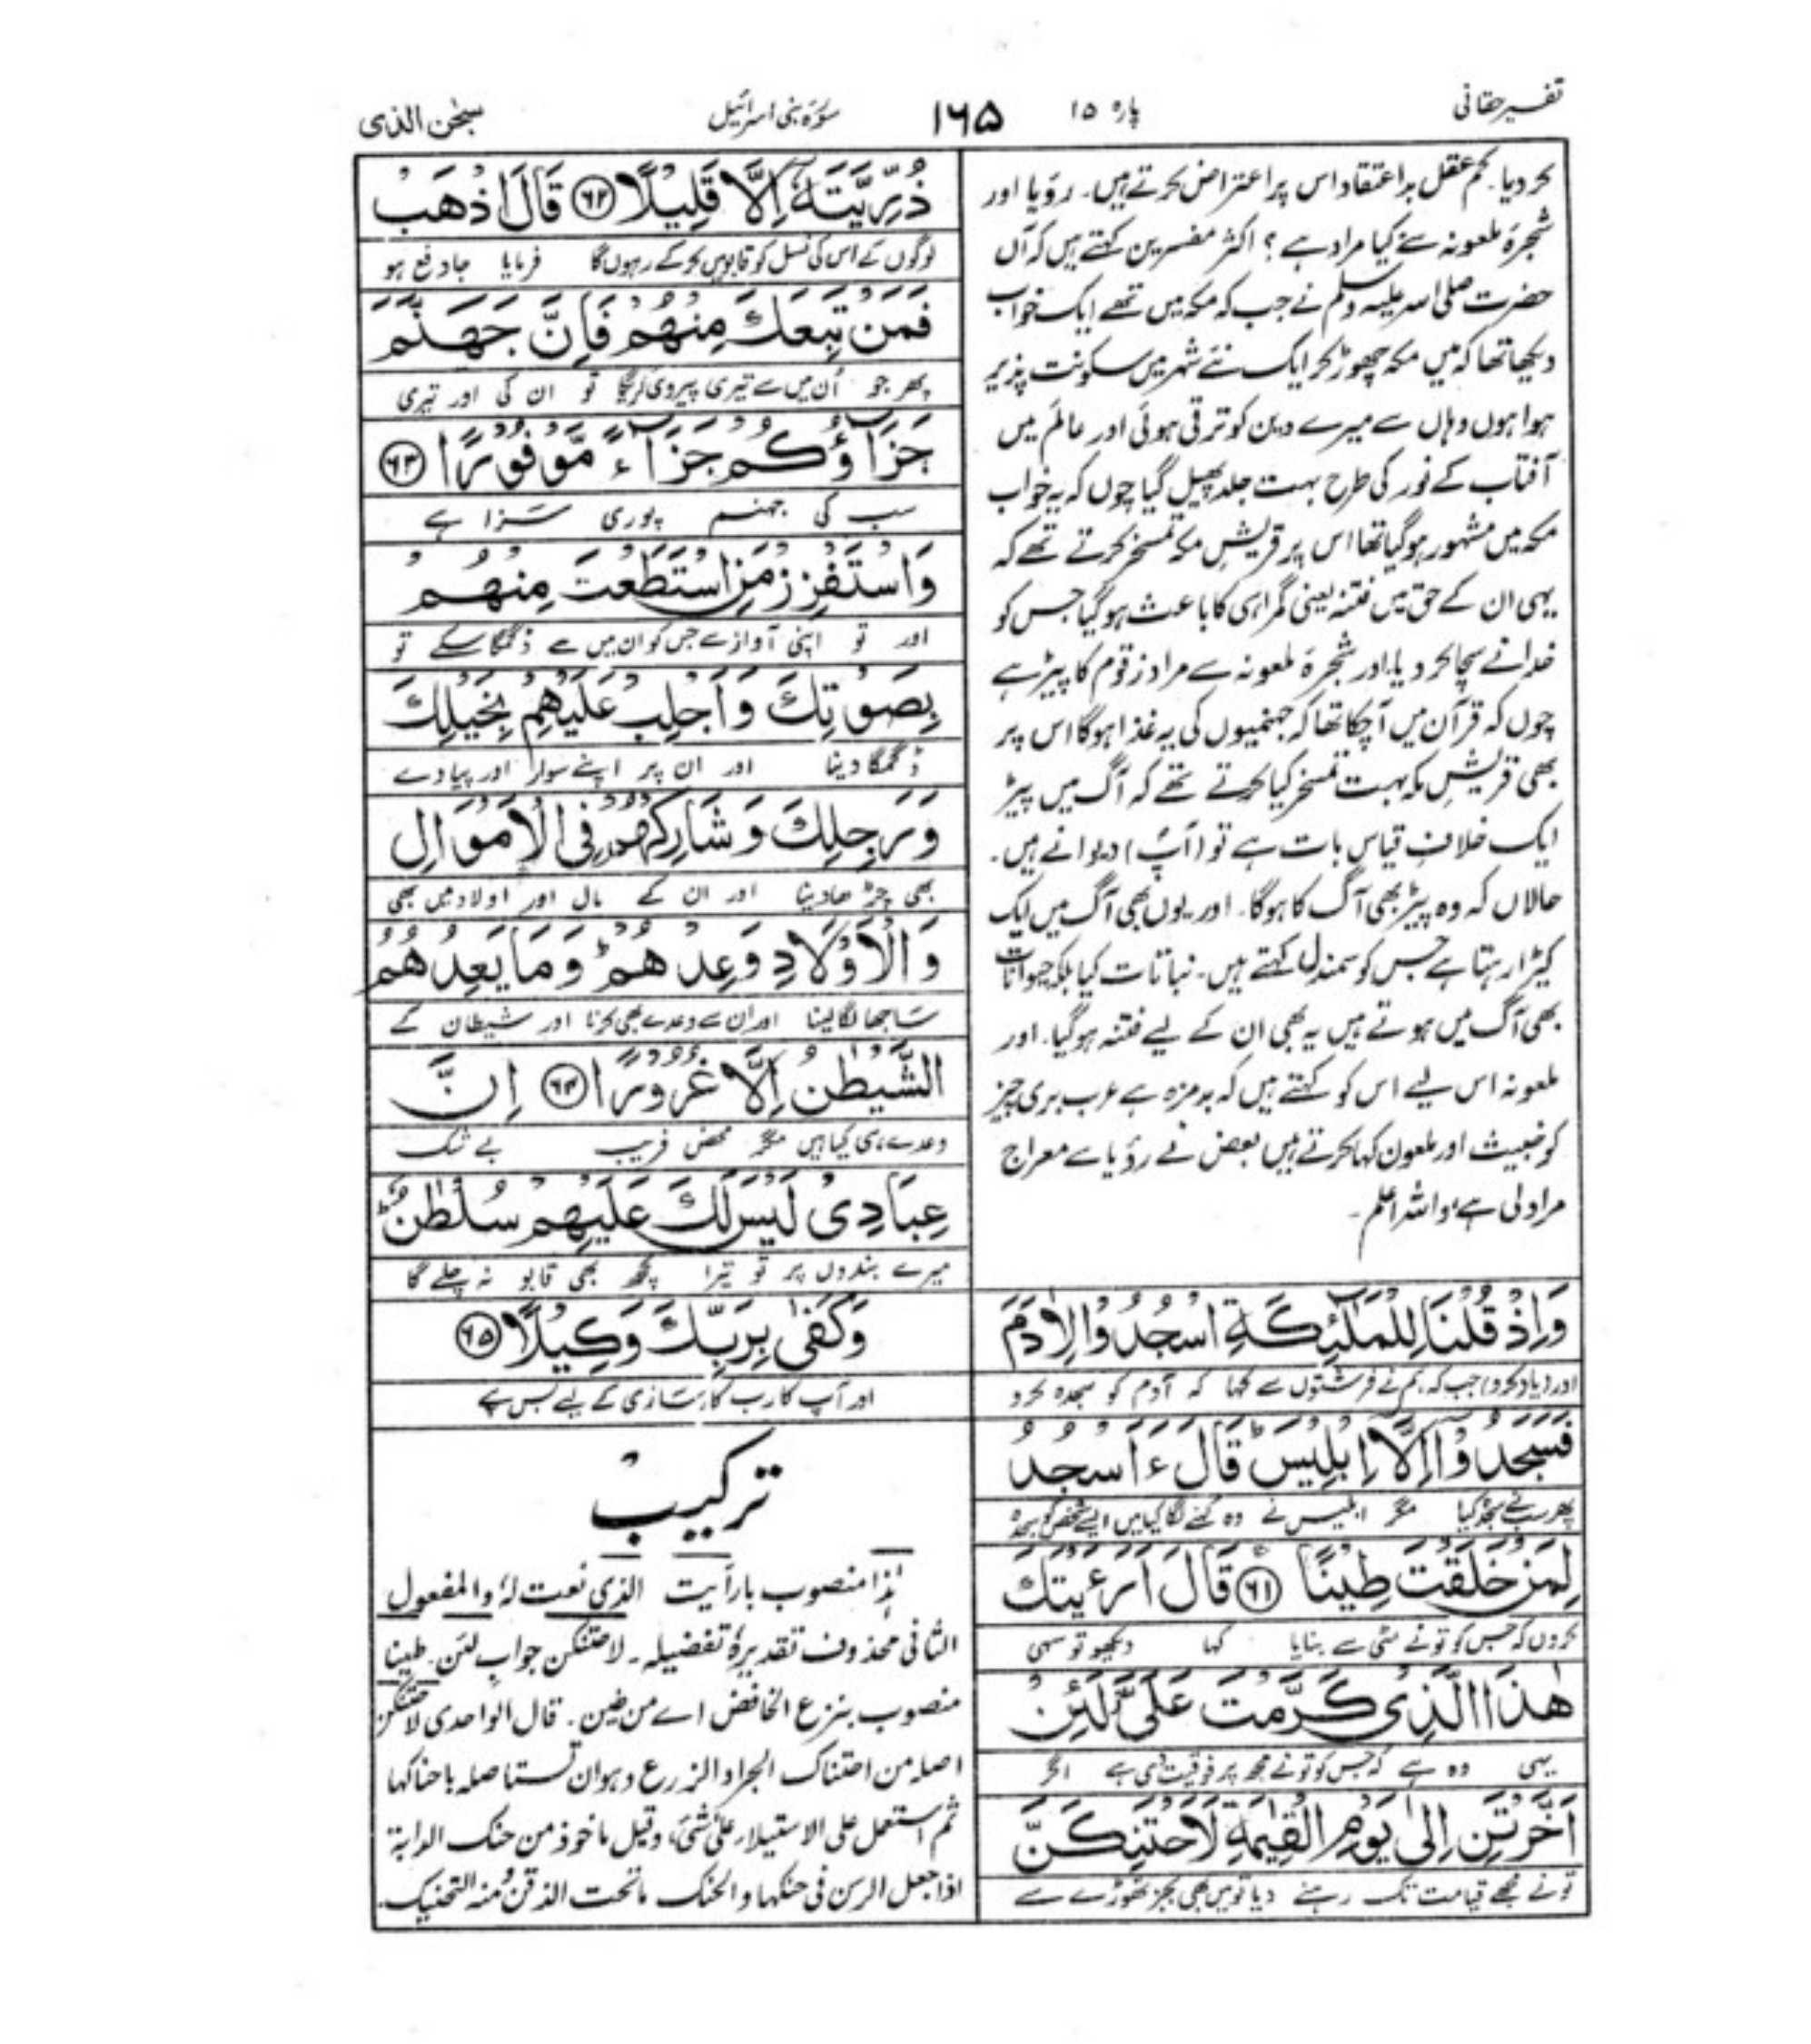 تفسیر حقانی
پارہ ۱۵
۱۶۵
سورۂ بنی اسرائیل
سبحٰن الذی
کر دیا۔ کم عقل بداعتقاد اس پر اعتراض کرتے ہیں۔ رؤیا اور
شجرۂ ملعونہ سے کیا مراد ہے؟ اکثر مفسرین کہتے ہیں کہ آں
حضرت صلی اللہ علیہ وسلم نے جب کہ مکہ میں تھے ایک خواب
دیکھا تھا کہ میں مکہ چھوڑ کر ایک نئے شہر میں سکونت پذیر
ہوا ہوں وہاں سے میرے دین کو ترقی ہوئی اور عالَم میں
آفتاب کے نور کی طرح بہت جلد پھیل گیا چوں کہ یہ خواب
مکہ میں مشہور ہو گیا تھا اس پر قریشِ مکہ تمسخر کرتے تھے کہ
یہی ان کے حق میں فتنہ یعنی گمراہی کا باعث ہو گیا جس کو
خدا نے سچا کر دیا، اور شجرۂ ملعونہ سے مراد زقوم کا پیڑ ہے
چوں کہ قرآن میں آ چکا تھا کہ جہنمیوں کی یہ غذا ہوگا اس پر
بھی قریشِ مکہ بہت تمسخر کیا کرتے تھے کہ آگ میں پیڑ
ایک خلافِ قیاس بات ہے تو (آپؐ) دیوانے ہیں۔
حالاں کہ وہ پیڑ بھی آگ کا ہوگا۔ اور یوں بھی آگ میں ایک
کیڑا رہتا ہے جس کو سمندل کہتے ہیں۔ نباتات کیا بلکہ حیوانات
بھی آگ میں ہوتے ہیں یہ بھی ان کے لیے فتنہ ہو گیا۔ اور
ملعونہ اس لیے اس کو کہتے ہیں کہ بدمزہ ہے عرب بری چیز
کو خبیث اور ملعون کہا کرتے ہیں بعض نے رؤیا سے معراج
مراد لی ہے، واللہ اعلم۔
وَاِذْ قُلْنَا لِلْمَلٰٓئِكَةِ اسْجُدُوْا لِاٰدَمَ
اور (یاد کرو) جب کہ ہم نے فرشتوں سے کہا کہ آدم کو سجدہ کرو
فَسَجَدُوْٓا اِلَّآ اِبْلِيْسَ ؕ قَالَ ءَاَسْجُدُ
پھر سب نے سجدہ کیا مگر ابلیس نے وہ کہنے لگا کیا میں ایسے شخص کو سجدہ
لِمَنْ خَلَقْتَ طِيْنًا ۶۱ قَالَ اَرَءَيْتَكَ
کروں کہ جس کو تو نے مٹی سے بنایا کہا دیکھو تو سہی
هٰذَا الَّذِيْ كَرَّمْتَ عَلَيَّ لَئِنْ
یہی وہ ہے کہ جس کو تو نے مجھ پر فوقیت دی ہے اگر
اَخَّرْتَنِ اِلٰى يَوْمِ الْقِيٰمَةِ لَاَحْتَنِكَنَّ
تو نے مجھے قیامت تک رہنے دیا تو میں بھی بجز تھوڑے سے
ذُرِّيَّتَهٗٓ اِلَّا قَلِيْلًا ۶۲ قَالَ اذْهَبْ
لوگوں کے اس کی نسل کو قابو میں کر کے رہوں گا فرمایا جا دفع ہو
فَمَنْ تَبِعَكَ مِنْهُمْ فَاِنَّ جَهَنَّمَ
پھر جو اُن میں سے تیری پیروی کرے گا تو ان کی اور تیری
جَزَآؤُكُمْ جَزَآءً مَّوْفُوْرًا ۶۳
سب کی جہنم پوری سزا ہے
وَاسْتَفْزِزْ مَنِ اسْتَطَعْتَ مِنْهُمْ
اور تو اپنی آواز سے جس کو ان میں سے ڈگمگا سکے تو
بِصَوْتِكَ وَاَجْلِبْ عَلَيْهِمْ بِخَيْلِكَ
ڈگمگا دینا اور ان پر اپنے سوار اور پیادے
وَرَجِلِكَ وَشَارِكْهُمْ فِي الْاَمْوَالِ
بھی چڑھا دینا اور ان کے مال اور اولاد میں بھی
وَالْاَوْلَادِ وَعِدْهُمْ ؕ وَمَا يَعِدُهُمُ
ساجھا لگا لینا اور ان سے وعدے بھی کرنا اور شیطان کے
الشَّيْطٰنُ اِلَّا غُرُوْرًا ۶۴ اِنَّ
وعدے ہی کیا ہیں مگر محض فریب بے شک
عِبَادِيْ لَيْسَ لَكَ عَلَيْهِمْ سُلْطٰنٌ ؕ
میرے بندوں پر تو تیرا کچھ بھی قابو نہ چلے گا
وَكَفٰى بِرَبِّكَ وَكِيْلًا ۶۵
اور آپ کا رب کارسازی کے لیے بس ہے
ترکیب
ہٰذا منصوب بارأیت الذی نعت لہٗ والمفعول
الثانی محذوف تقدیرہٗ تفضیلہ۔ لاحتنکن جواب لئن۔ طینا
منصوب بنزع الخافض اے من طین۔ قال الواحدی لاحتنکن
اصلہ من احتناک الجراد الزرع وہو ان تستاصلہ باحناکہا
ثم استعمل علی الاستیلاء علیٰ شیٔ، وقیل ماخوذ من حنک الدابۃ
اذا جعل الرسن فی حنکہا والحنک ماتحت الذقن ومنہ التحنیک۔